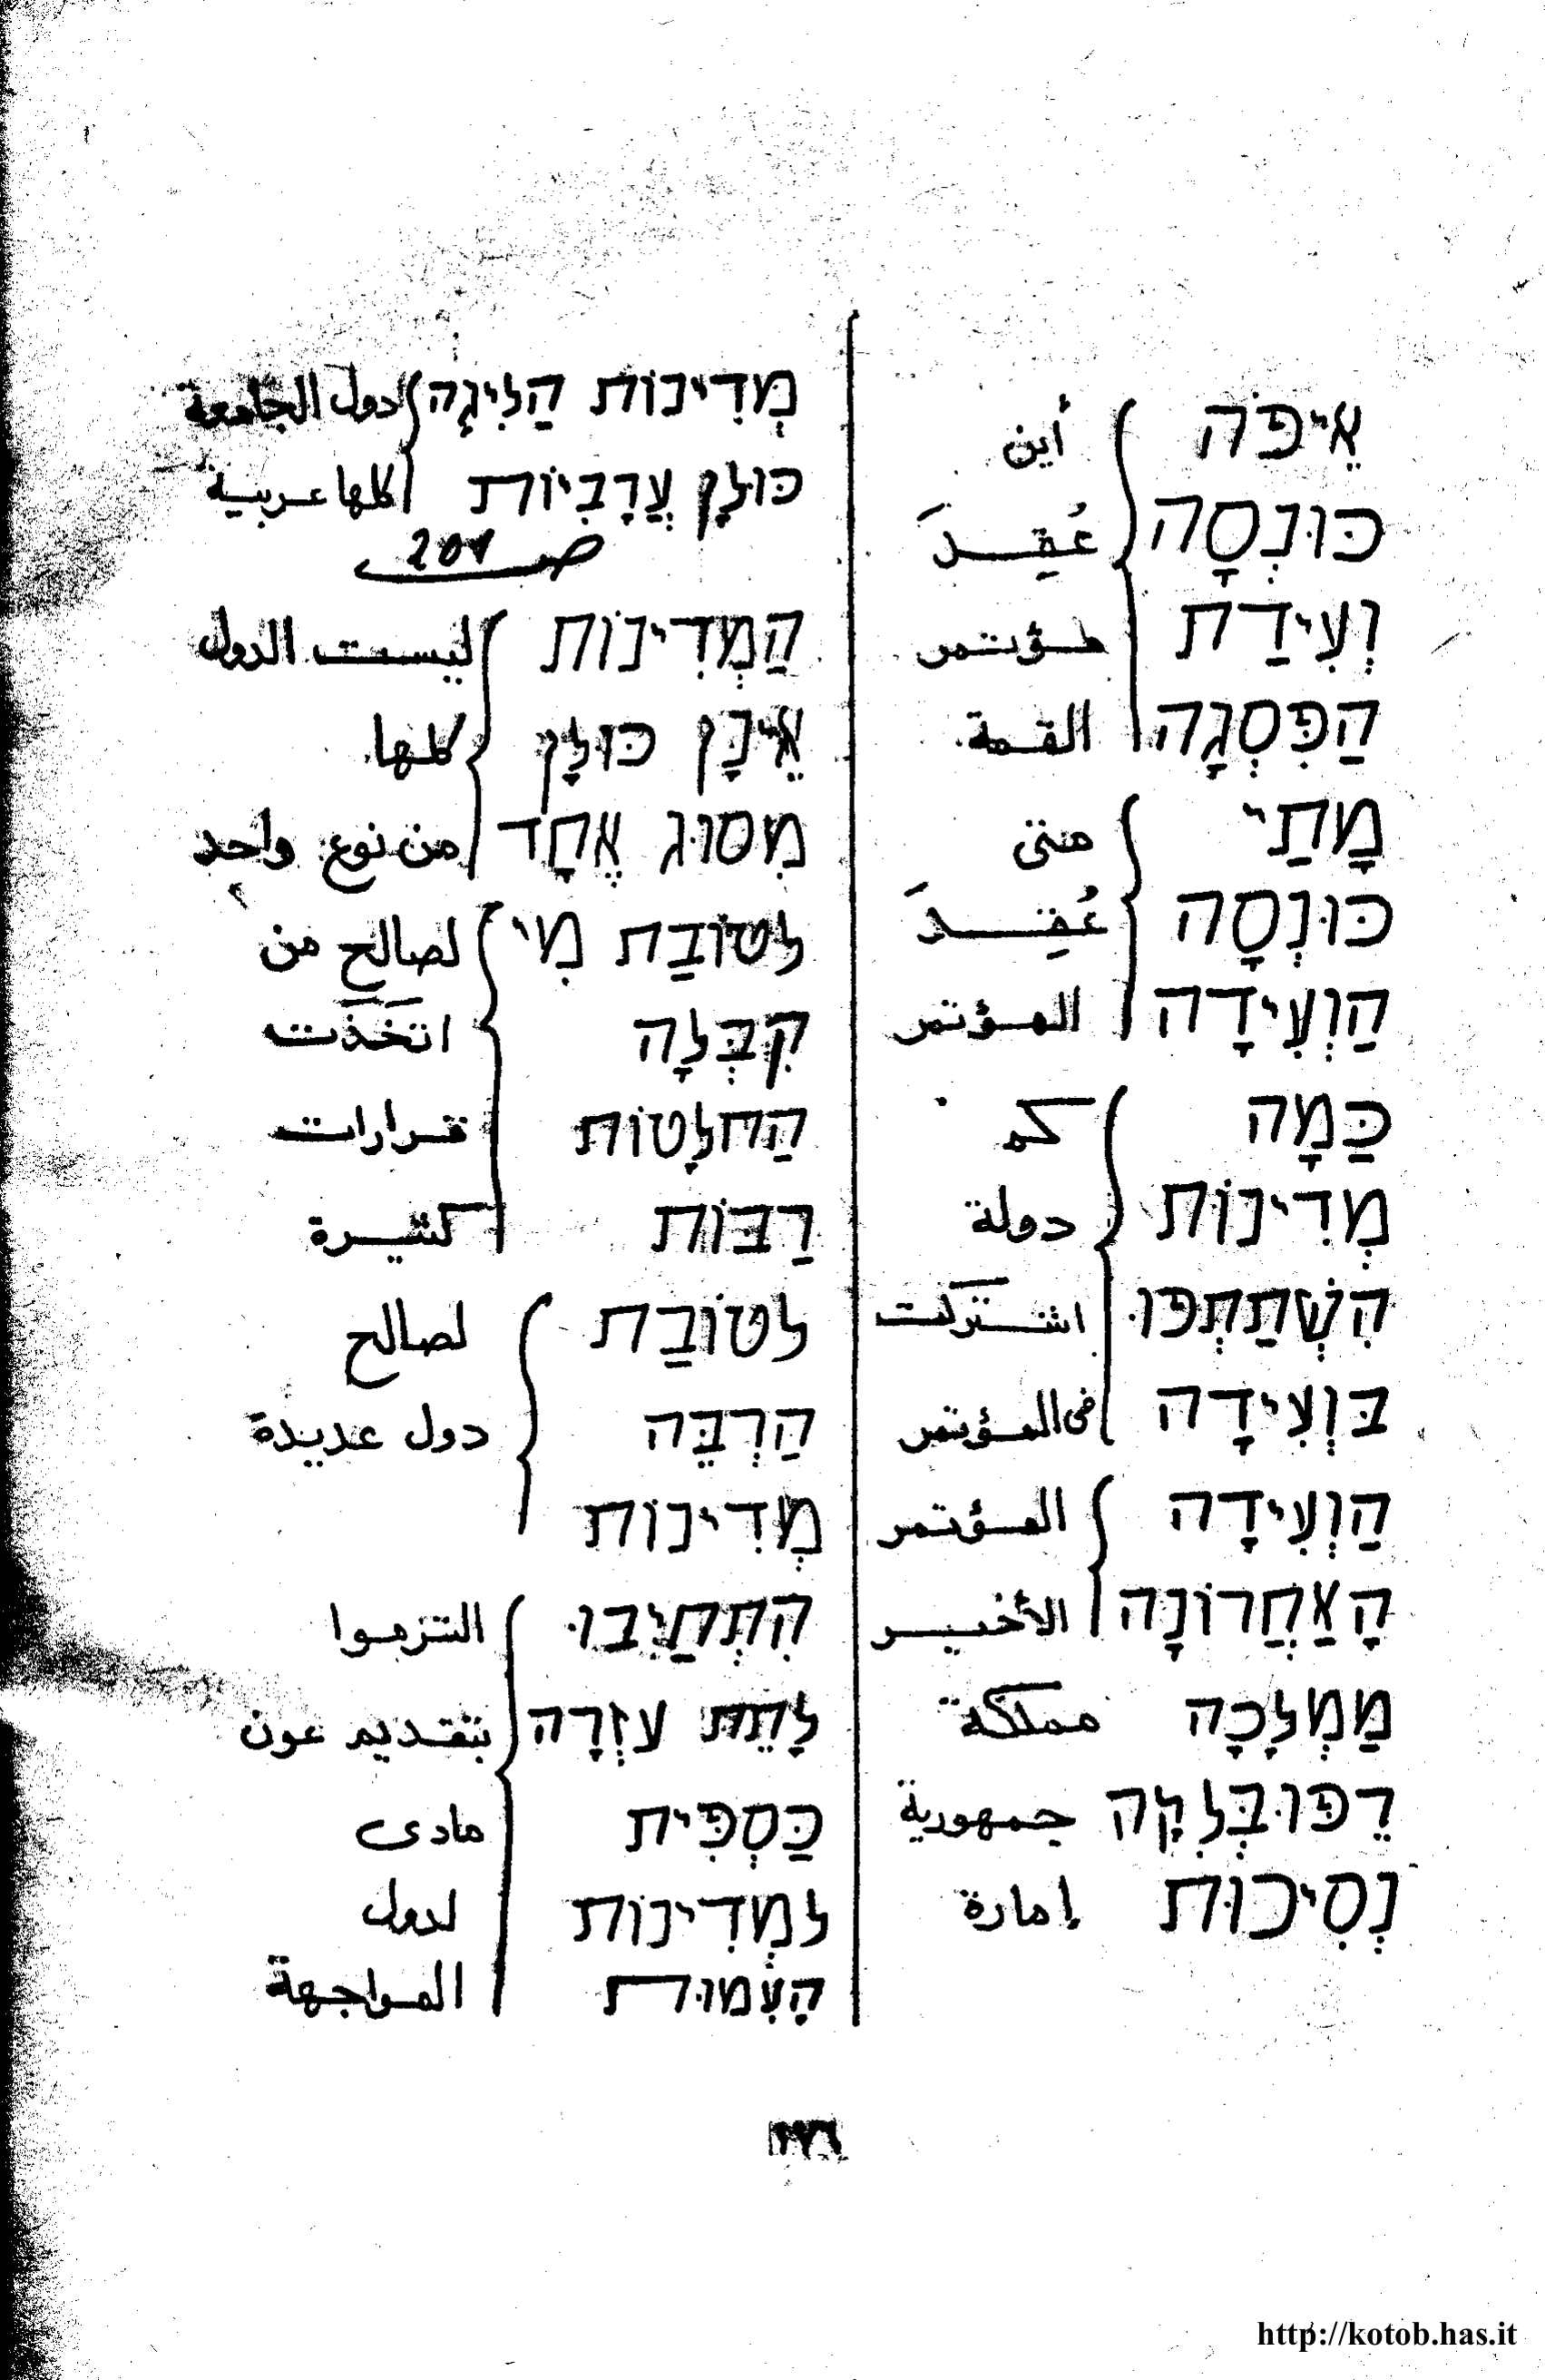 אֵיפֹה أين
כּוּנְסָה عُقِدَ
וְעִידַת مؤتمر
הַפִּסְגָה القمة
מָתַי متى
כּוּנְסָה عُقِدَ
הַוְעִידָה المؤتمر
כַּמָה كم
מְדִינוֹת دولة
הִשְׁתַתְפוּ اشتركت
בַּוְעִידָה في المؤتمر
הַוְעִידָה المؤتمر
הָאַחֲרוֹנָה الأخير
מַמְלָכָה مملكة
רֵפּוּבְּלִקָה جمهورية
נְסִיכוּת إمارة
מְדִינוֹת הַלִיגָה دول الجامعة
כּוּלָן עֲרָבִיוֹת كلها عربية
ص 201
הַמְדִינוֹת ليست الدول
אֵינָן כּוּלָן كلها
מִסוּג אֶחָד من نوع واحد
לטוֹבַת מִי لصالح من
קִבְּלָה اتخذت
הַחלָטוֹת قرارات
רַבּוֹת كثيرة
לטוֹבַת لصالح
הַרְבֵּה دول عديدة
מְדִינוֹת
הִתְחַיִבוּ التزموا
לָתֵת עזְרָה بتقديم عون
כַּסְפִּית مادى
למְדִינוֹת لدول
הָעִמוּת المواجهة
١٧٦
http://kotob.has.it